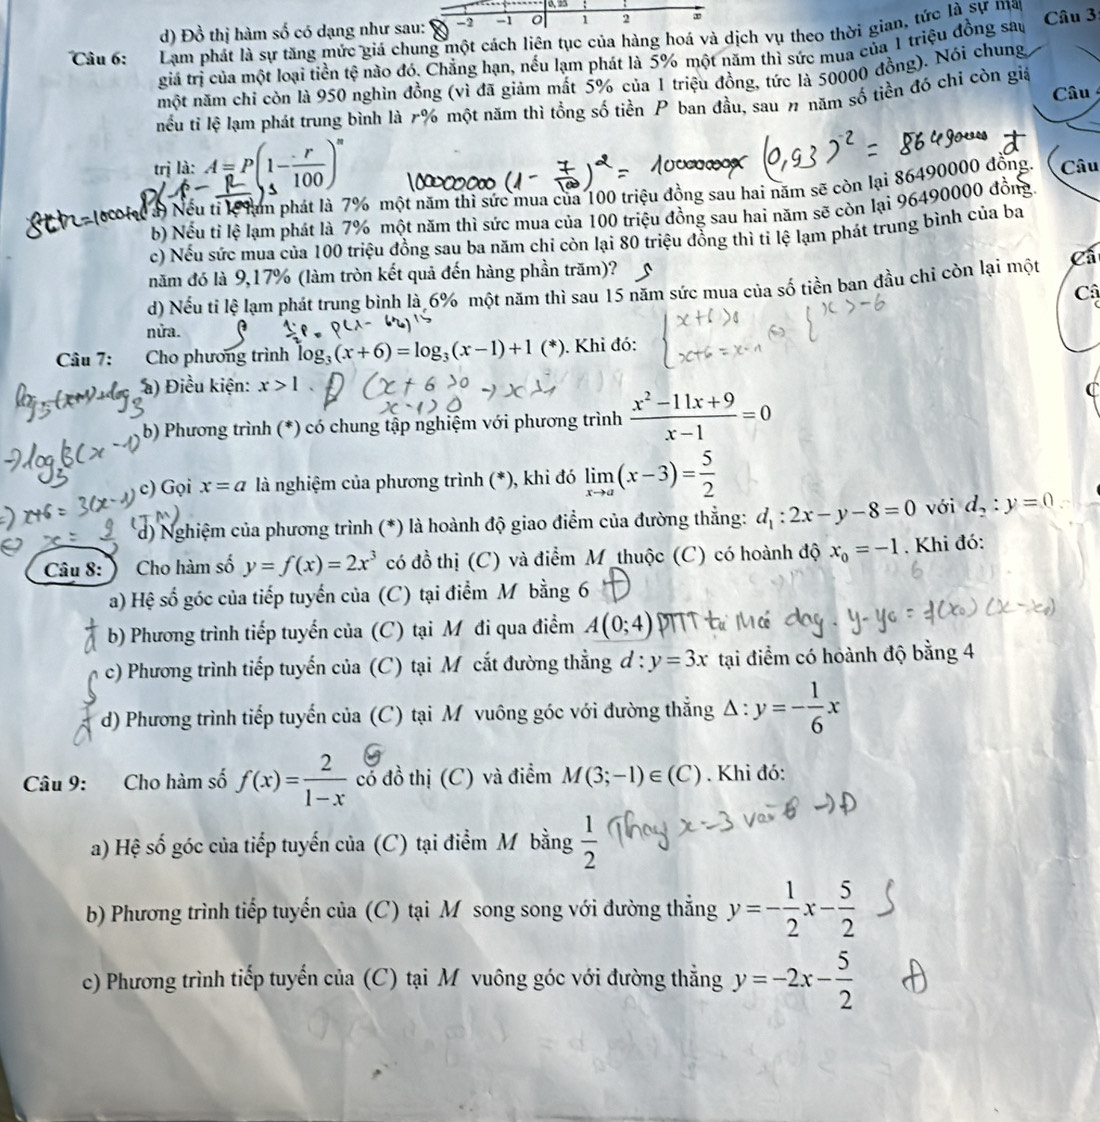 0,25
-2 -1 O 1 2 x
d) Đồ thị hàm số có dạng như sau:
Câu 3
Câu 6: Lạm phát là sự tăng mức giá chung một cách liên tục của hàng hoá và dịch vụ theo thời gian, tức là sự mấ
giá trị của một loại tiền tệ nào đó. Chẳng hạn, nếu lạm phát là 5% một năm thì sức mua của 1 triệu đồng sau
một năm chỉ còn là 950 nghìn đồng (vì đã giảm mất 5% của 1 triệu đồng, tức là 50000 đồng). Nói chung
nếu tỉ lệ lạm phát trung bình là r% một năm thì tổng số tiền P ban đầu, sau n năm số tiền đó chỉ còn giá
Câu
trị là: A = P(1 - r/100)^n
100000000 (1 - 7/100)² = 100000000 x (0,93)² = 86490000 đ
Câu
a) Nếu tỉ lệ lạm phát là 7% một năm thì sức mua của 100 triệu đồng sau hai năm sẽ còn lại 86490000 đồng.
b) Nếu tỉ lệ lạm phát là 7% một năm thì sức mua của 100 triệu đồng sau hai năm sẽ còn lại 96490000 đồng.
c) Nếu sức mua của 100 triệu đồng sau ba năm chỉ còn lại 80 triệu đồng thì tỉ lệ lạm phát trung bình của ba
năm đó là 9,17% (làm tròn kết quả đến hàng phần trăm)? S
d) Nếu tỉ lệ lạm phát trung bình là 6% một năm thì sau 15 năm sức mua của số tiền ban đầu chỉ còn lại một
nửa. S
x+6>0
x>-6
Câu 7: Cho phương trình log₃(x+6) = log₃(x-1)+1 (*). Khi đó:
a) Điều kiện: x > 1. Đ (x+6>0
x-1>0
b) Phương trình (*) có chung tập nghiệm với phương trình (x²-11x+9)/(x-1) = 0
c) Gọi x = a là nghiệm của phương trình (*), khi đó lim x→a (x-3) = 5/2
=> x+6 = 3(x-1)
d) Nghiệm của phương trình (*) là hoành độ giao điểm của đường thẳng: d₁: 2x-y-8=0 với d₂: y=0
(TM)
Câu 8: Cho hàm số y = f(x) = 2x³ có đồ thị (C) và điểm M thuộc (C) có hoành độ x₀ = -1. Khi đó:
a) Hệ số góc của tiếp tuyến của (C) tại điểm M bằng 6 Đ
b) Phương trình tiếp tuyến của (C) tại M đi qua điểm A(0;4) PTTT tại M có dạng. y-y₀ = f(x₀)(x-x₀)
c) Phương trình tiếp tuyến của (C) tại M cắt đường thẳng d: y = 3x tại điểm có hoành độ bằng 4
S
d) Phương trình tiếp tuyến của (C) tại M vuông góc với đường thẳng Δ: y = -1/6 x
Câu 9: Cho hàm số f(x) = 2/(1-x) có đồ thị (C) và điểm M(3;-1) ∈ (C). Khi đó:
a) Hệ số góc của tiếp tuyến của (C) tại điểm M bằng 1/2 Thay x=3 vào → Đ
b) Phương trình tiếp tuyến của (C) tại M song song với đường thẳng y = -1/2 x - 5/2 S
c) Phương trình tiếp tuyến của (C) tại M vuông góc với đường thẳng y = -2x - 5/2 Đ